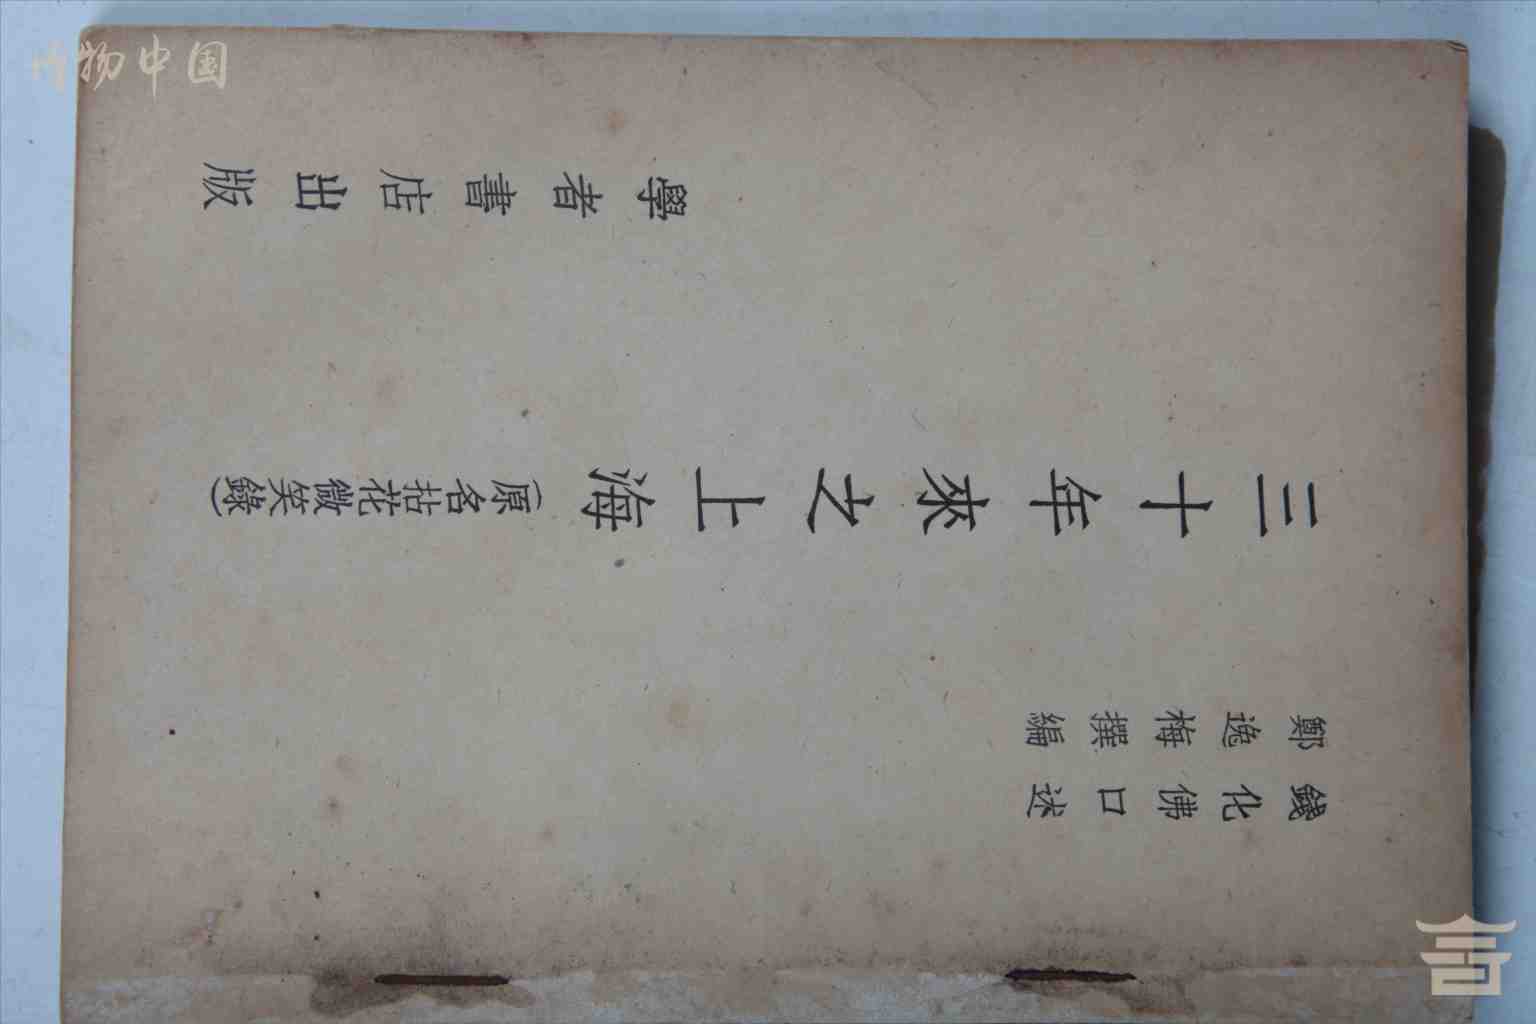 錢化佛口述
鄭逸梅撰編
三十年來之上海
(原名拈花微笑錄)
學者書店出版
博物中国